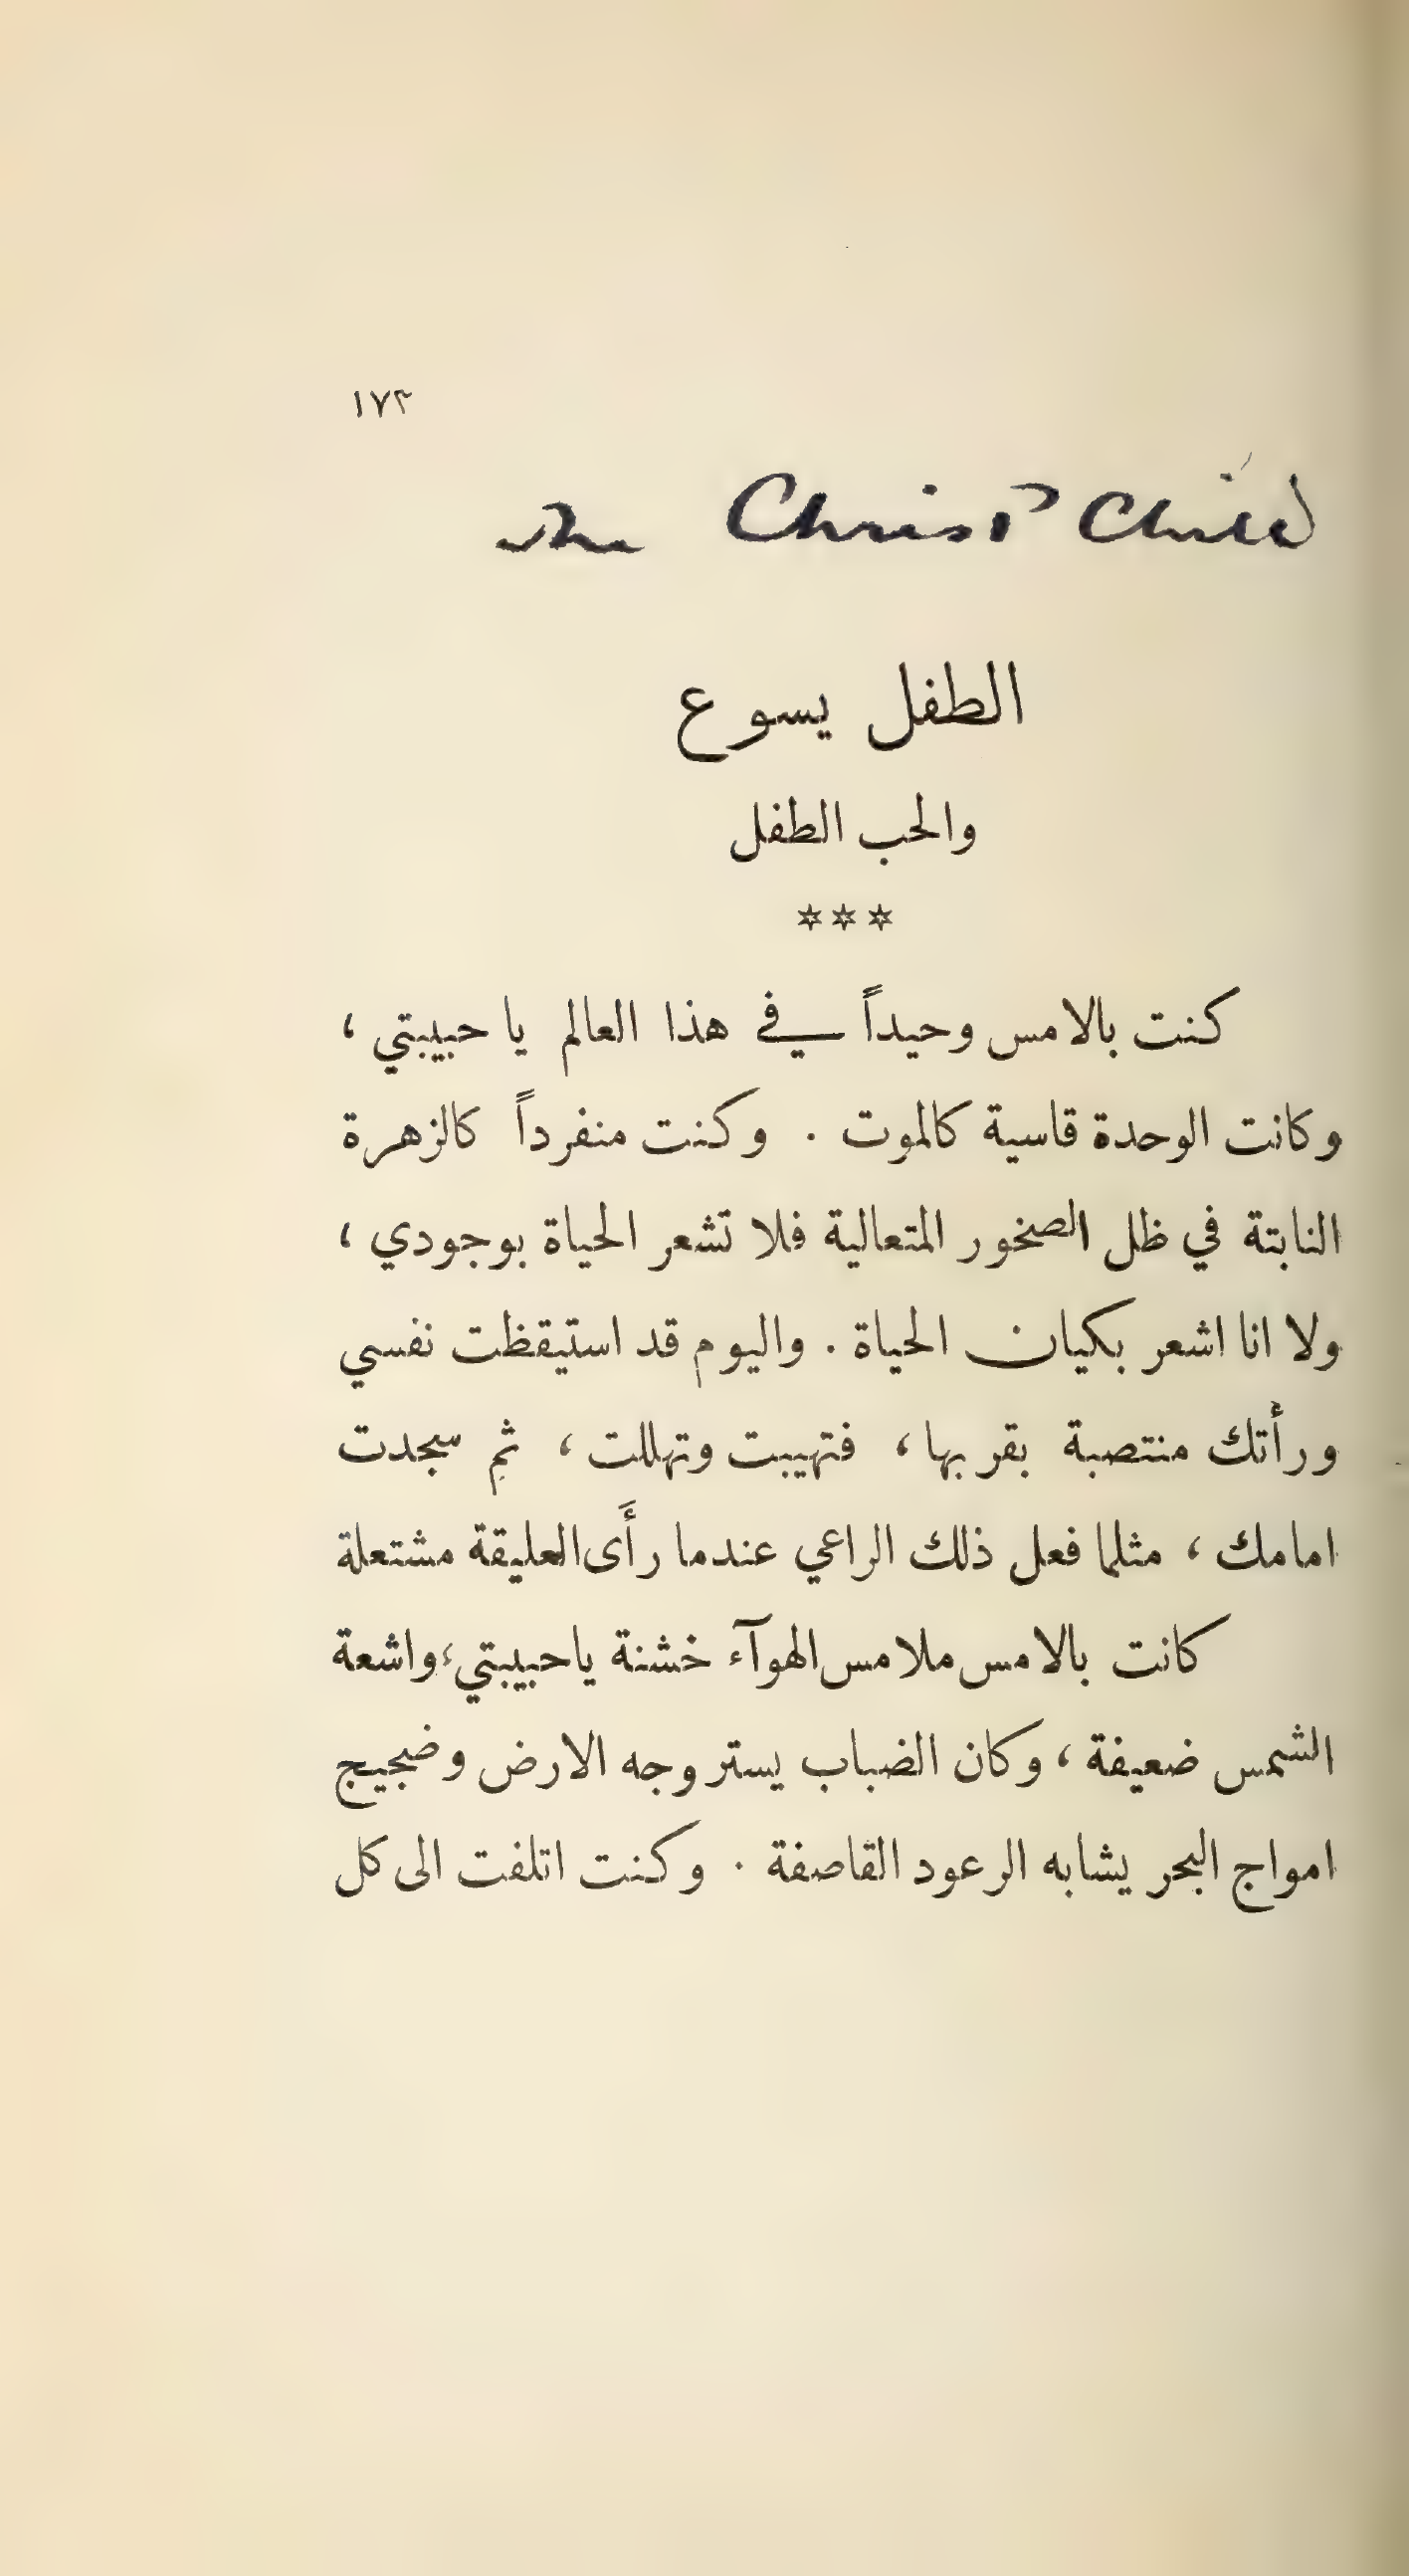 ١٧٣
The Christ Child
الطفل يسوع
والحب الطفل
***
كنت بالامس وحيداً في هذا العالم يا حبيبتي ،
وكانت الوحدة قاسية كالموت . وكنت منفرداً كالزهرة
النابتة في ظل الصخور المتعالية فلا تشعر الحياة بوجودي ،
ولا انا اشعر بكيان الحياة . واليوم قد استيقظت نفسي
ورأتك منتصبة بقربها ، فتهيبت وتهللت ، ثم سجدت
امامك ، مثلما فعل ذلك الراعي عندما رأَى العليقة مشتعلة
كانت بالامس ملامس الهوآء خشنة ياحبيبتي ، واشعة
الشمس ضعيفة ، وكان الضباب يستر وجه الارض وضجيج
امواج البحر يشابه الرعود القاصفة . وكنت اتلفت الى كل